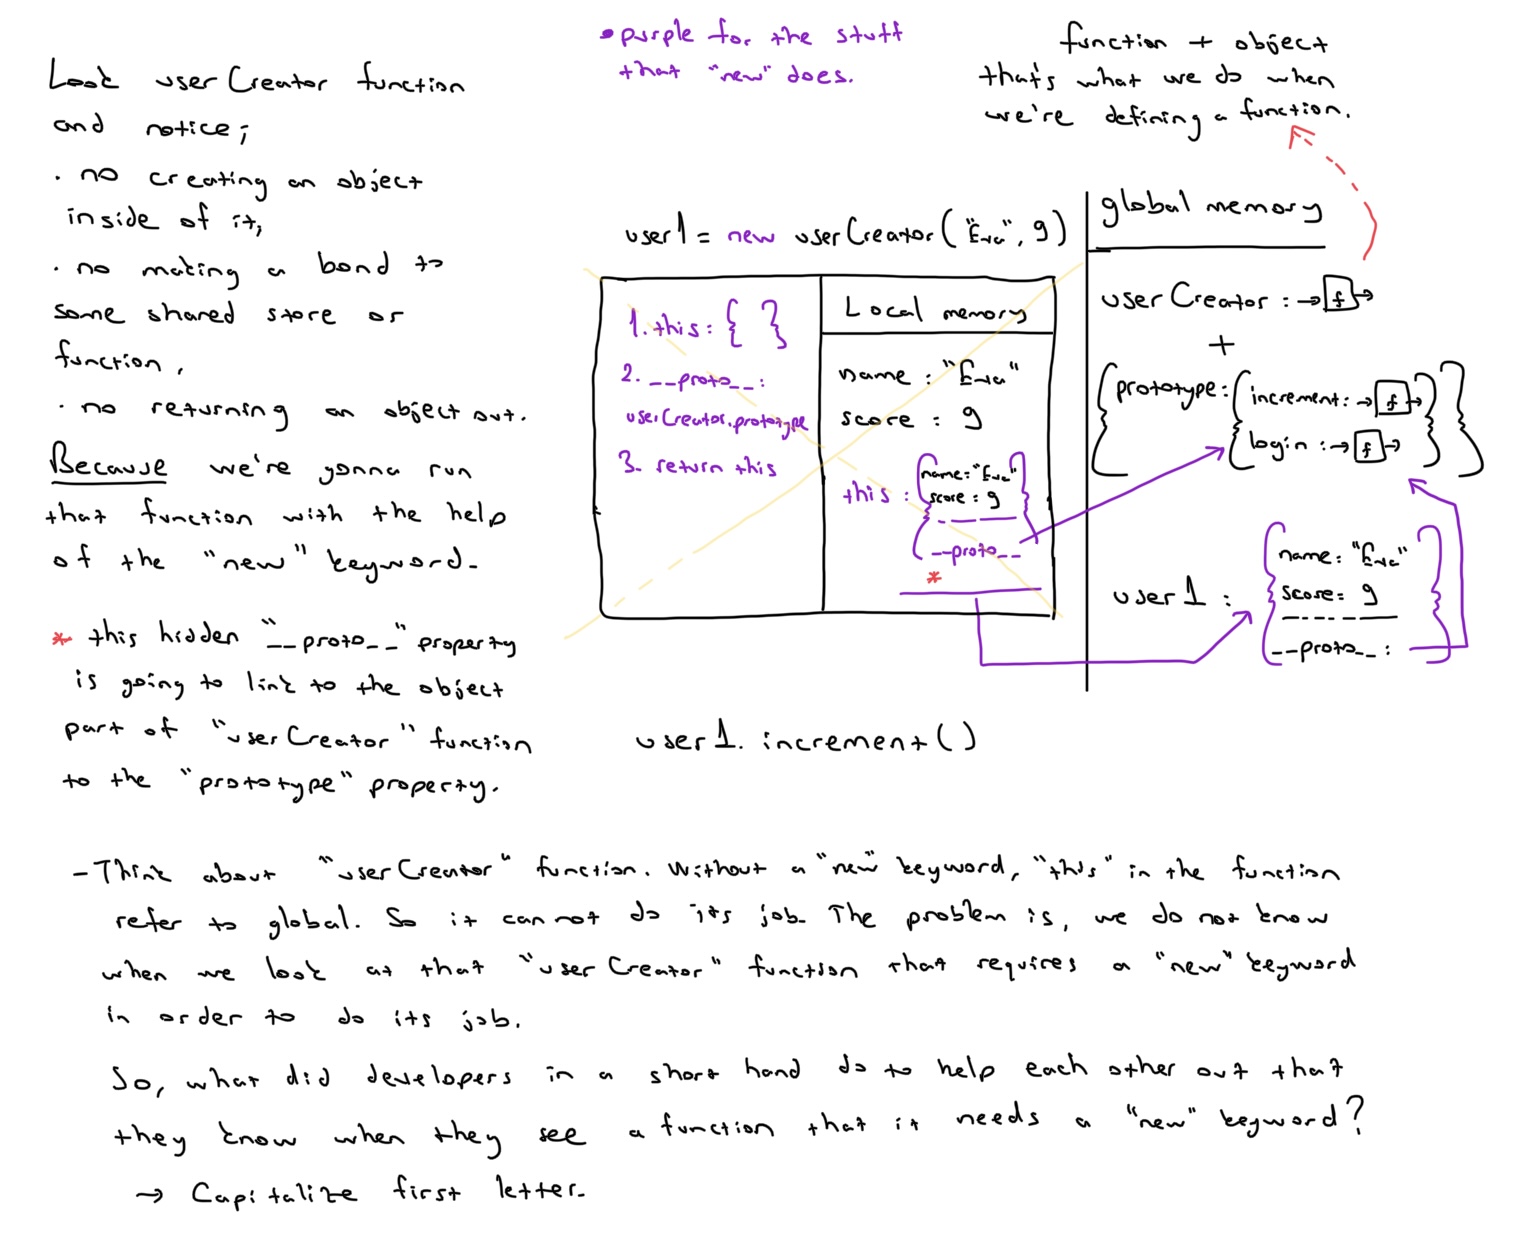 • purple for the stuff
that "new" does.
function + object
that's what we do when
we're defining a function.
Look userCreator function
and notice;
· no creating an object
inside of it,
· no making a bond to
some shared store or
function,
· no returning an object out.
Because we're gonna run
that function with the help
of the "new" keyword.
* this hidden "__proto__" property
is going to link to the object
part of "userCreator" function
to the "prototype" property.
user1 = new userCreator("Eva", 9)
1. this: { }
2. __proto__:
userCreator.prototype
3. return this
Local memory
name : "Eva"
score : 9
this : { name: "Eva"
score : 9
__proto__ }
*
global memory
userCreator : → f →
+
{ prototype: { increment: → f → } }
login : → f →
user1 : { name: "Eva"
score: 9
__proto__ : }
user1. increment()
- Think about "userCreator" function. Without a "new" keyword, "this" in the function
refer to global. So it can not do its job. The problem is, we do not know
when we look at that "userCreator" function that requires a "new" keyword
in order to do its job.
So, what did developers in a short hand do to help each other out that
they know when they see a function that it needs a "new" keyword?
→ Capitalize first letter.